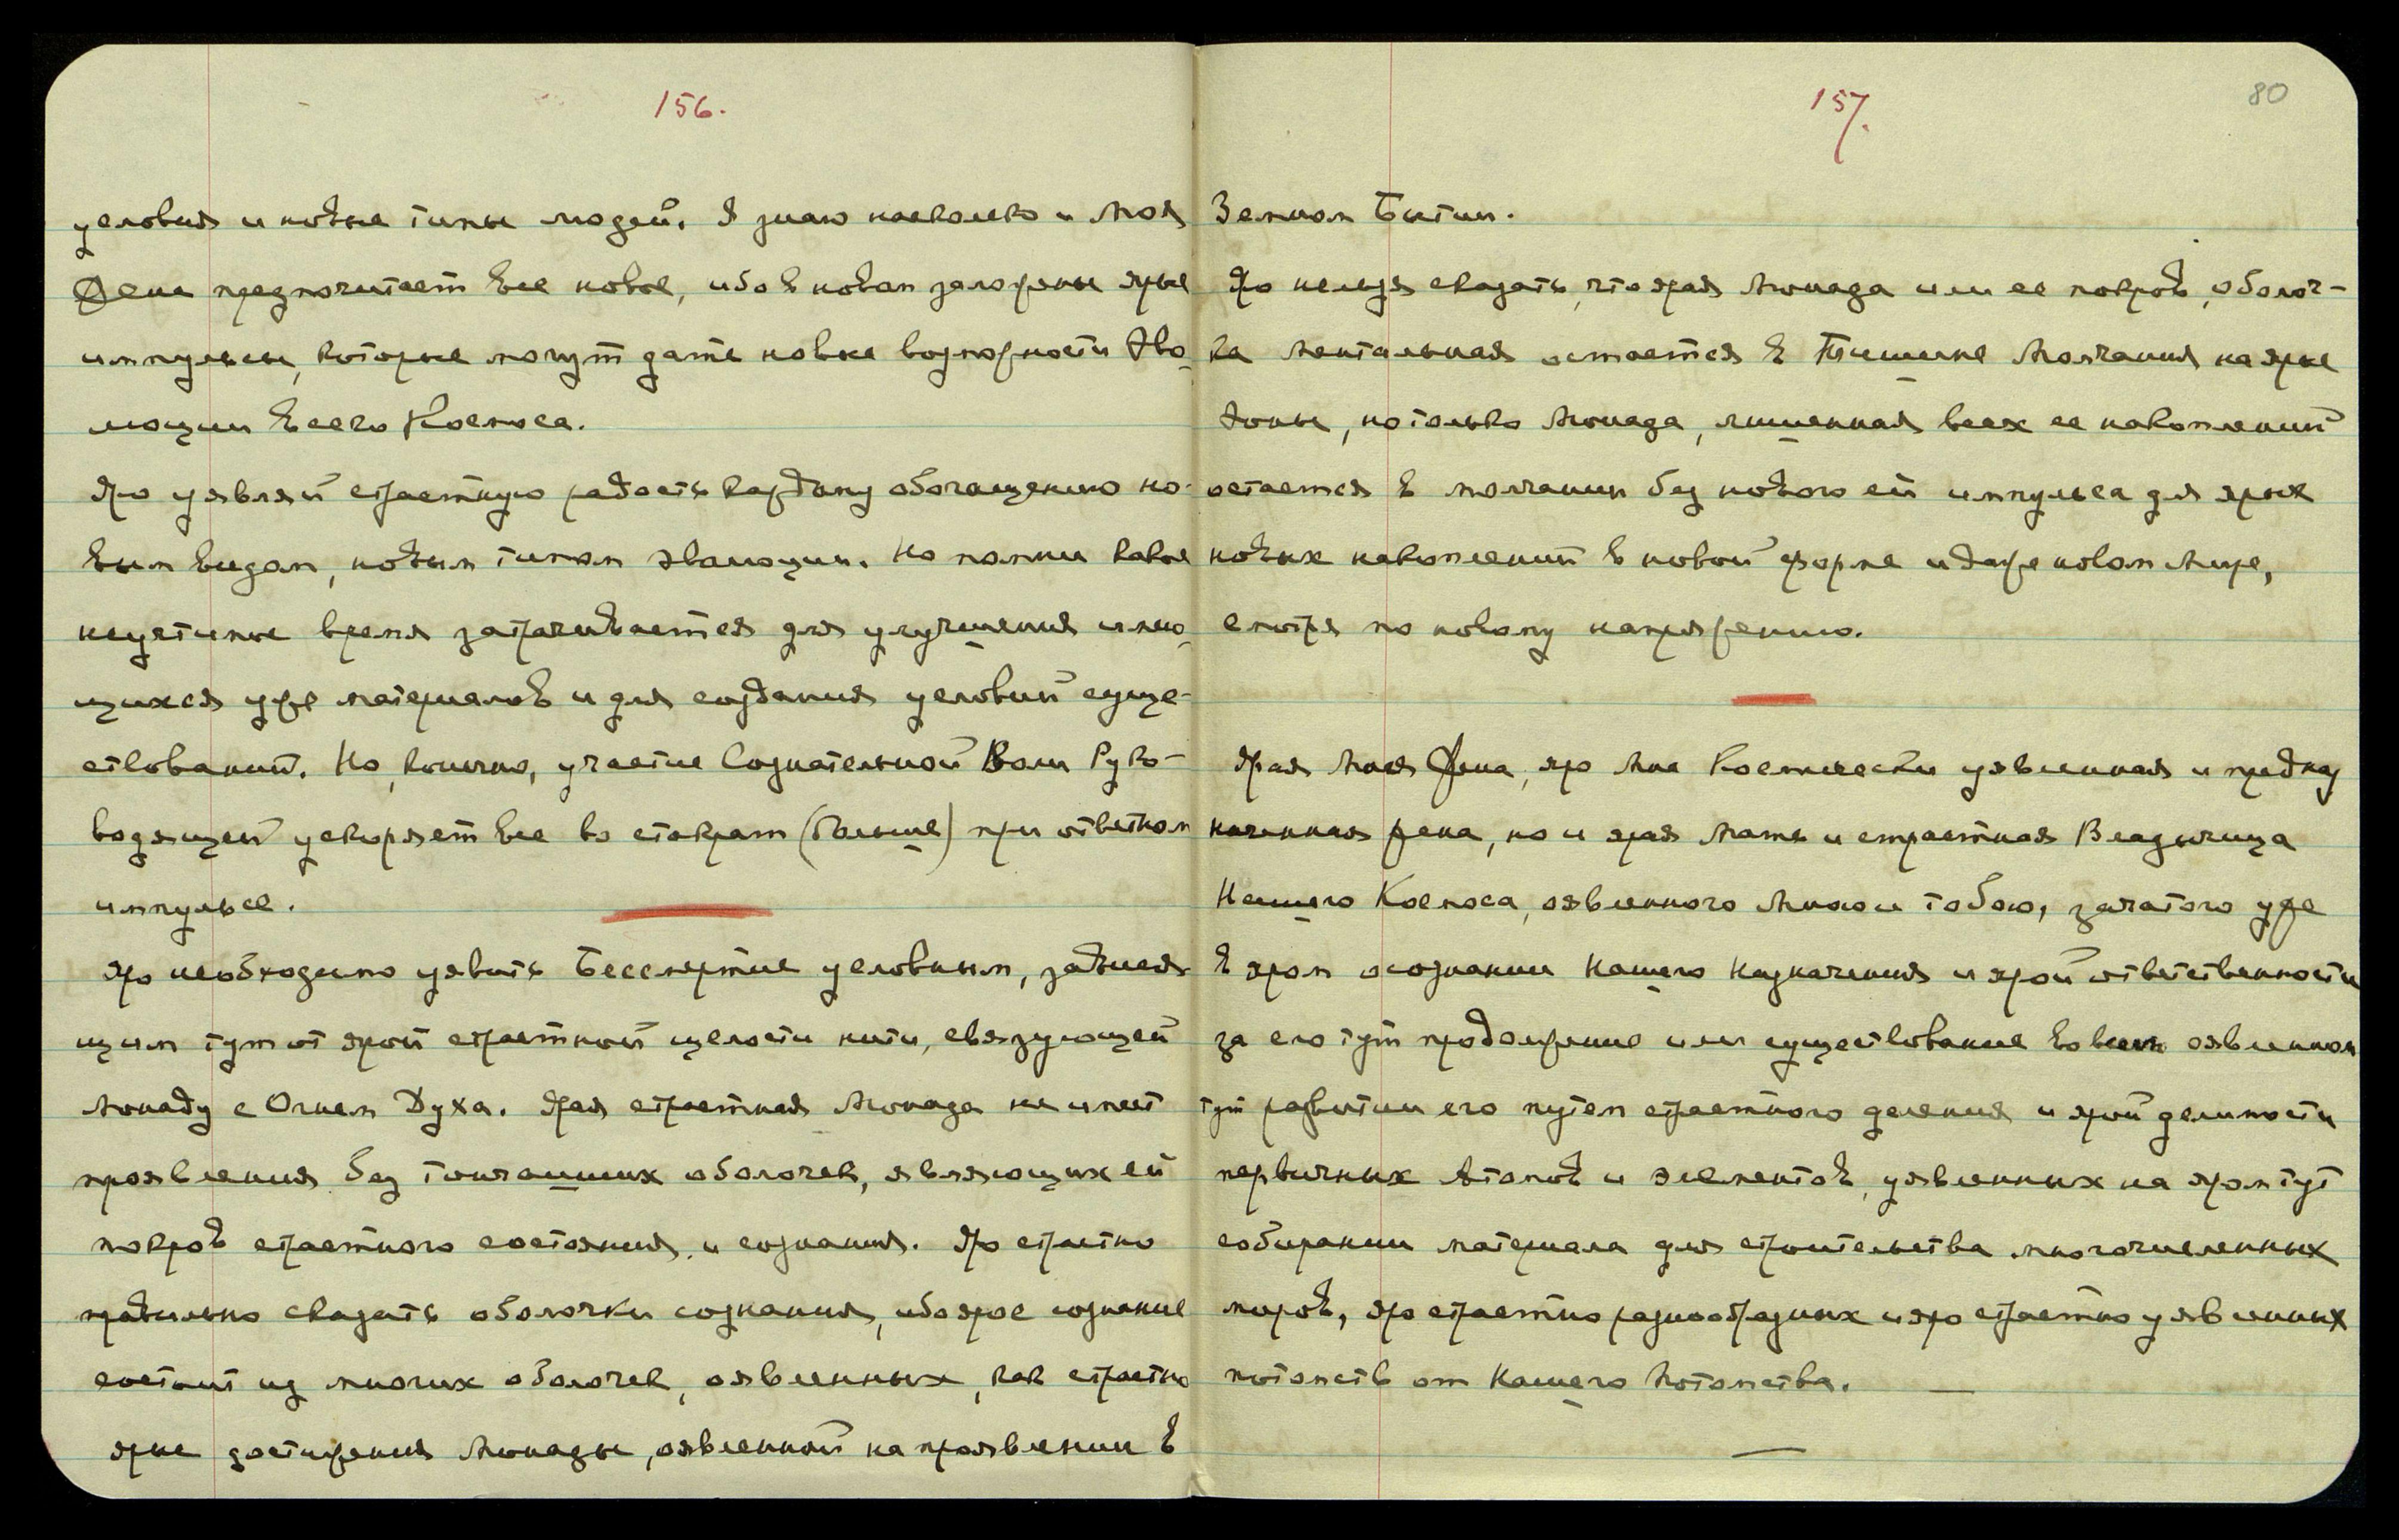 156.
условия и новые типы людей. Я знаю насколько и Моя
Жена предпочитает все новое, ибо в новом заложены ярые
импульсы, которые могут дать новые возможности Эво-
люции всего Космоса.
Яро уявляй страстную радость каждому обогащению но-
вым видам, новым типам эволюции. Но помни какое
неуятимые время затрачивается для улучшения имею-
щихся уже материалов и для создания условий суще-
ствований. Но, конечно, участие Сознательной Воли Руко-
водящей ускоряет все во стократ (больше) при ответном
импульсе.
Яро необходимо уявить Бессмертие условным, завися-
щим тут от ярой страстной целости нити, связующей
Монаду с Огнем Духа. Ярая страстная Монада не имеет
проявления без тончайших оболочек, являющих ей
покров страстного состояния и сознания. Яро страстно
правильно сказать оболочки сознания, ибо ярое сознание
состоит из многих оболочек, оявленных, как страстно
ярые достижения Монады, оявленной на проявлении в
157.
80
Земном Бытии.
Яро нельзя сказать, что ярая Монада или ее покров, оболоч-
ка ментальная остается в Тишине Молчания на ярые
Эоны, но только Монада, лишенная всех ее накоплений
остается в молчании без нового ей импульса для ярых
новых накоплений в новой форме и даже новом Мире,
смотря по новому напряжению.
Ярая Моя Жена, яро Мне Космически уявленная и предназ
наченная Жена, но и ярая Мать и страстная Владычица
Нашего Космоса, оявленного Мною и тобою, зачатого уже
в яром осознании Нашего Назначения и ярой ответственности
за его тут продолжение или существование во всем оявленном
тут развитии его путем страстного деления и ярой делимости
первичных Атомов и элементов, уявленных на яром тут
собирании материала для строительства многочисленных
миров, яро страстно разнообразных и яро страстно уявленных
потомств от Нашего Потомства.